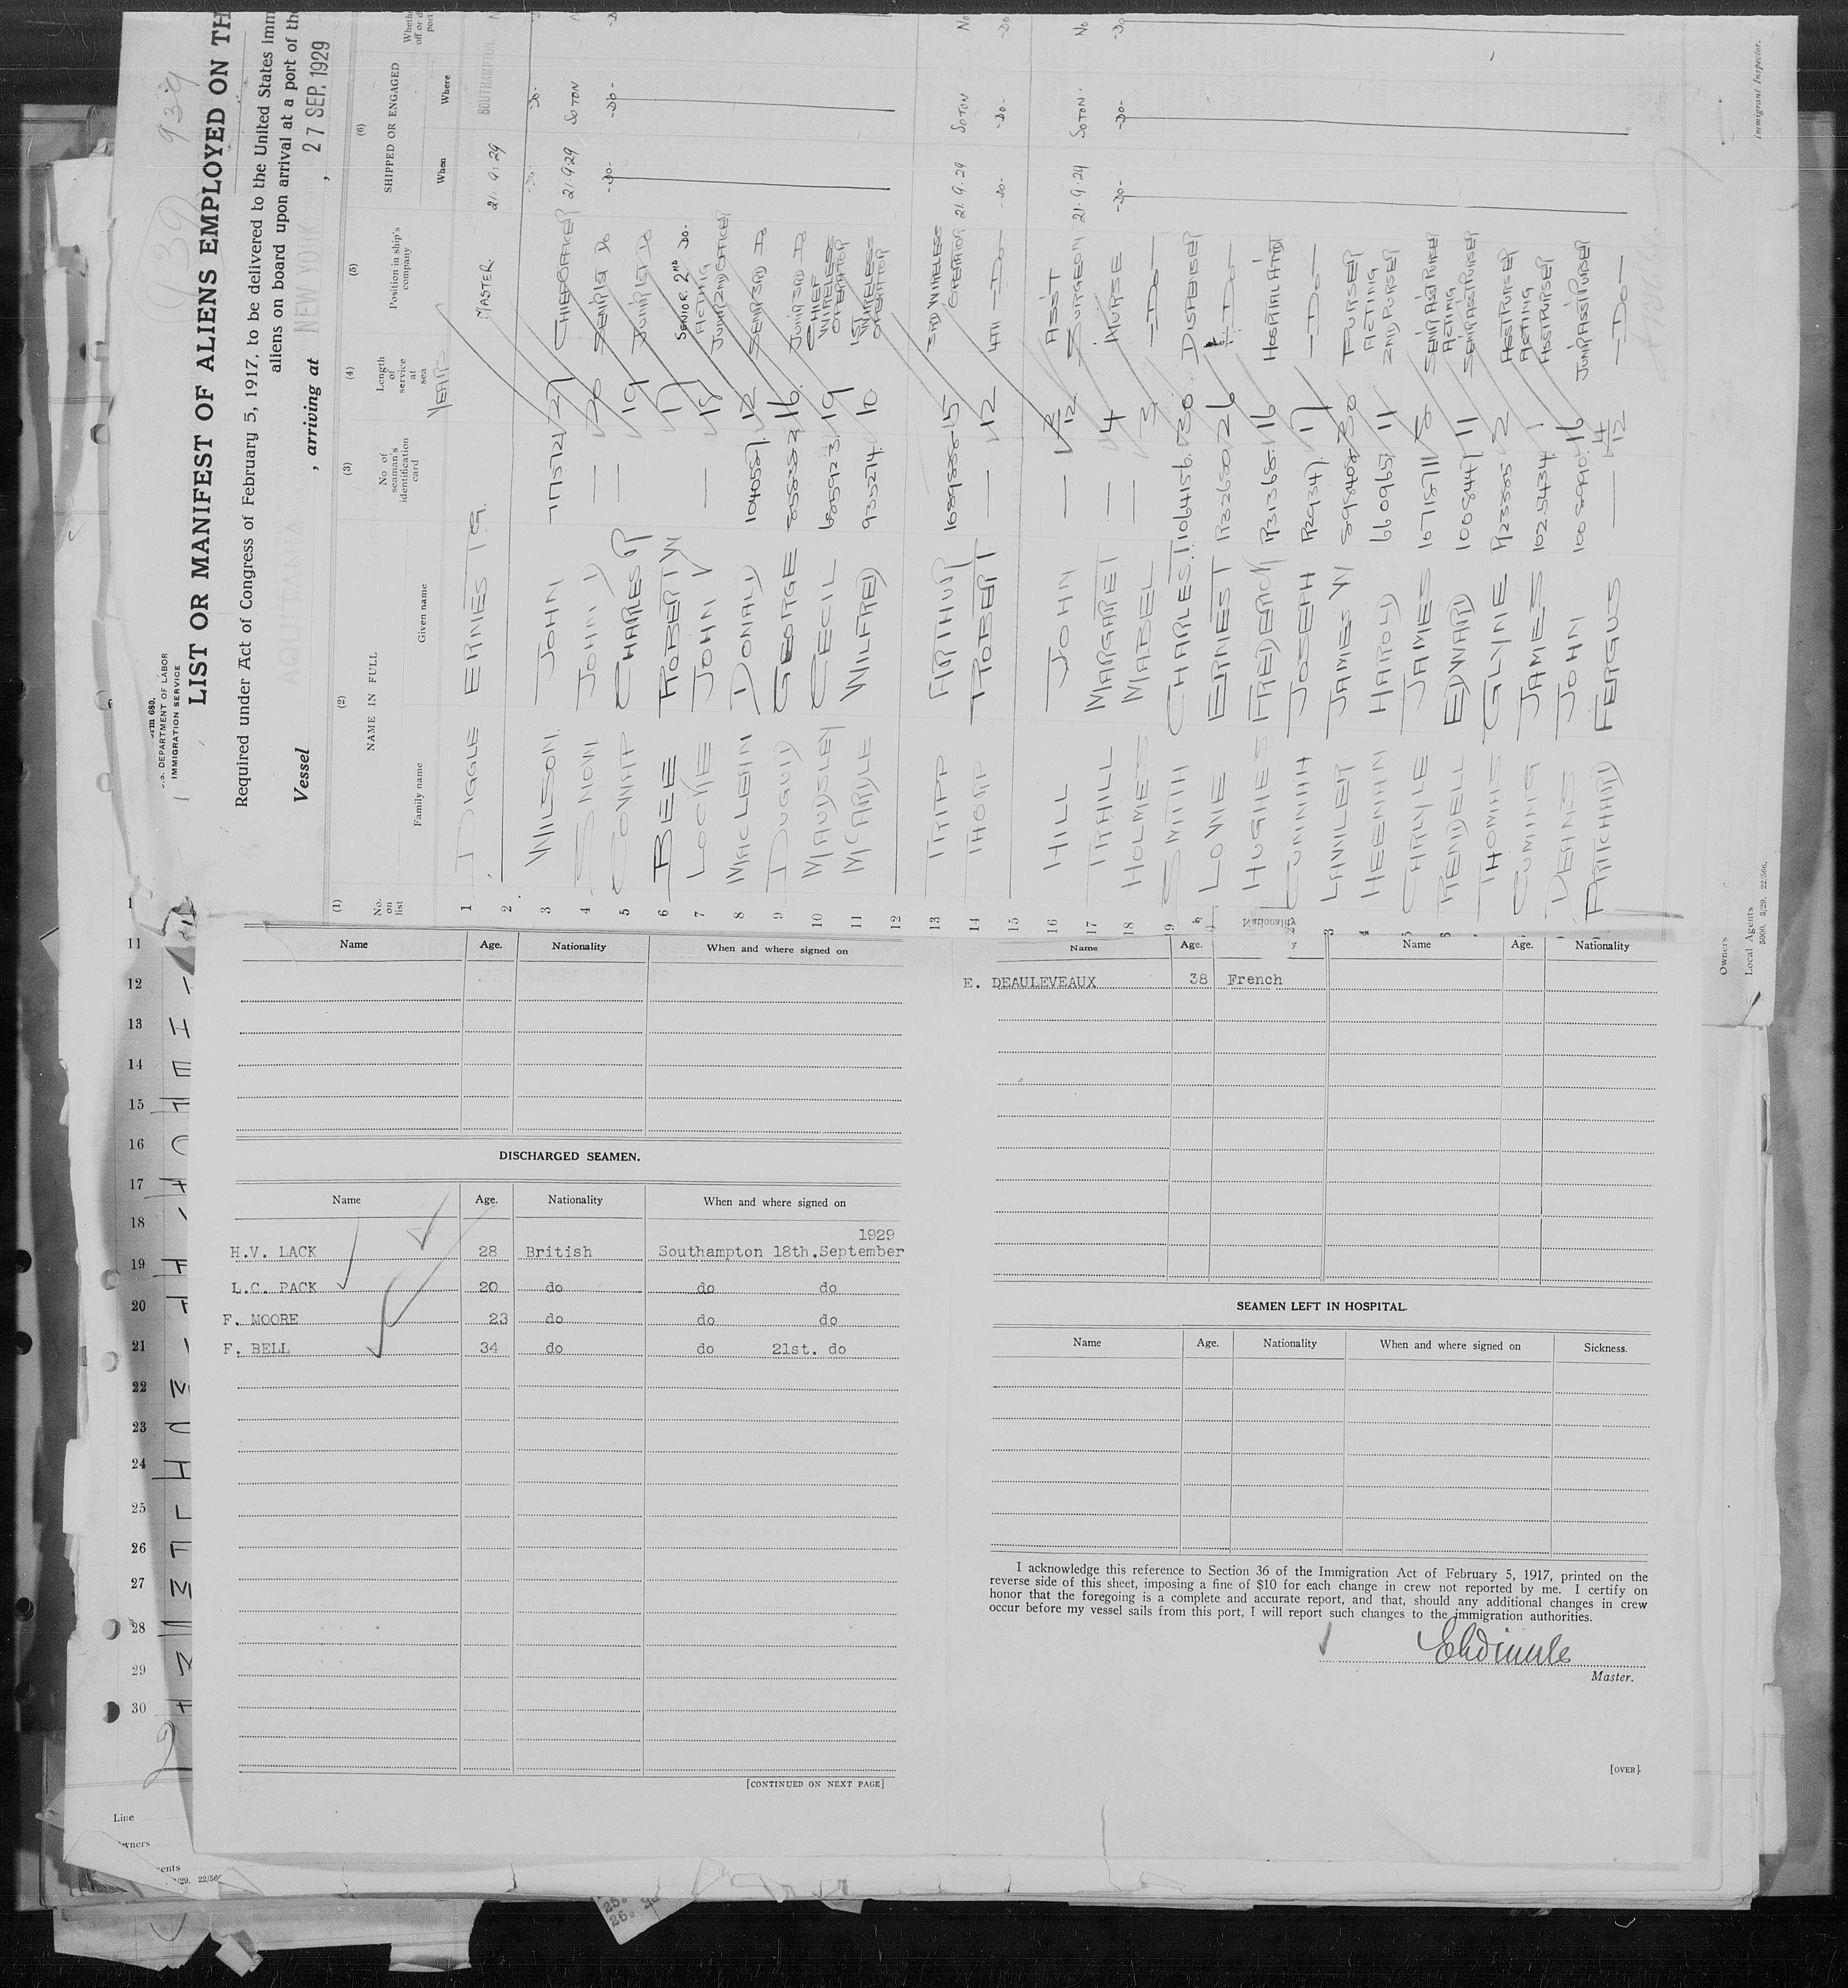 Form 680.
U.S. DEPARTMENT OF LABOR
IMMIGRATION SERVICE
939 939
LIST OR MANIFEST OF ALIENS EMPLOYED ON TH
Required under Act of Congress of February 5, 1917, to be delivered to the United States imm
aliens on board upon arrival at a port of the
Vessel AQUITANIA, arriving at NEW YORK, 27 SEP. 1929
(1) (2) (3) (4) (5) (6)
No. on list NAME IN FULL No. of seaman's identification card Length of service at sea Position in ship's company SHIPPED OR ENGAGED
Family name Given name YEARS When Where
1 DIGGLE ERNEST G. MASTER 21.9.29 SOUTHAMPTON
2 -Do- -Do-
3 WILSON JOHN 775721 27 CHIEF OFFICER 21.9.29 SOTON
4 SNOW JOHN D — 20 SENR 1ST DO -Do- -Do-
5 COWAP CHARLES R — 19 JUNR 1ST DO
6 BEE ROBERT W 17 SENIOR 2ND DO-
7 LOCKE JOHN D — 18 ACTING JUNR 2ND OFFICER
8 MACLEAN DONALD 1040587 12 SENR 3RD DO
9 DUGUID GEORGE 16 JUNR 3RD DO
10 MAUDSLEY CECIL 19 CHIEF WIRELESS OPERATOR
11 MCARDLE WILFRED 935274 10 1ST WIRELESS OPERATOR
12
13 TRIPP ARTHUR 15 3RD WIRELESS OPERATOR 21.9.29 SOTON No
14 THORP ROBERT — 12 4TH —DO— -Do- -Do- -Do-
15
16 HILL JOHN — ASST SURGEON 21.9.29 SOTON. No
17 TRAILL MARGARET — 4 NURSE -Do- -Do- -Do-
18 HOLMES MABEL — —DO—
19 SMITH CHARLES.T 1064156 30 DISPENSER
LOWE ERNEST R32680 26 —DO—
HUGHES FREDERICK R31368 16 HOSPITAL ATTDT
CUNNAH JOSEPH R29347 17 —DO—
LAWLER JAMES W 898408 30 PURSER
HEENAN HAROLD 660965 11 ACTING 2ND PURSER
CARLYLE JAMES 1071871 8 SENR ASST PURSER
RENDELL EDWARD 1008447 11 ACTING SENR ASST PURSER
THOMAS GLYNE R23385 2 ASST PURSER
CUMING JAMES 1025434 1 ACTING ASST PURSER
DEANS JOHN 1008990 16 JUNR ASST PURSER
PRITCHARD FERGUS — 4/12 —DO—
Immigrant Inspector.
Owners
Local Agents
5000. 3/29. 22/566.
11
12
13
14
15
16
17
18
19
20
21
22
23
24
25
26
27
28
29
30
Line
Name Age. Nationality When and where signed on
DISCHARGED SEAMEN.
Name Age. Nationality When and where signed on
1929
H.V. LACK 28 British Southampton 18th.September
L.C. PACK 20 do do do
F. MOORE 23 do do do
F. BELL 34 do do 21st. do
[CONTINUED ON NEXT PAGE]
Nationality
Name Age. Name Age. Nationality
E. DEAULEVEAUX 38 French
SEAMEN LEFT IN HOSPITAL.
Name Age. Nationality When and where signed on Sickness.
I acknowledge this reference to Section 36 of the Immigration Act of February 5, 1917, printed on the
reverse side of this sheet, imposing a fine of $10 for each change in crew not reported by me. I certify on
honor that the foregoing is a complete and accurate report, and that, should any additional changes in crew
occur before my vessel sails from this port, I will report such changes to the immigration authorities.
Master.
[OVER]